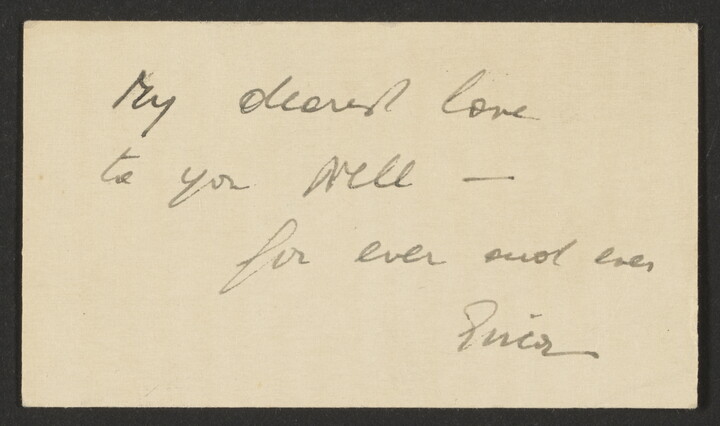 My dearest love
to you Nell —
for ever and ever